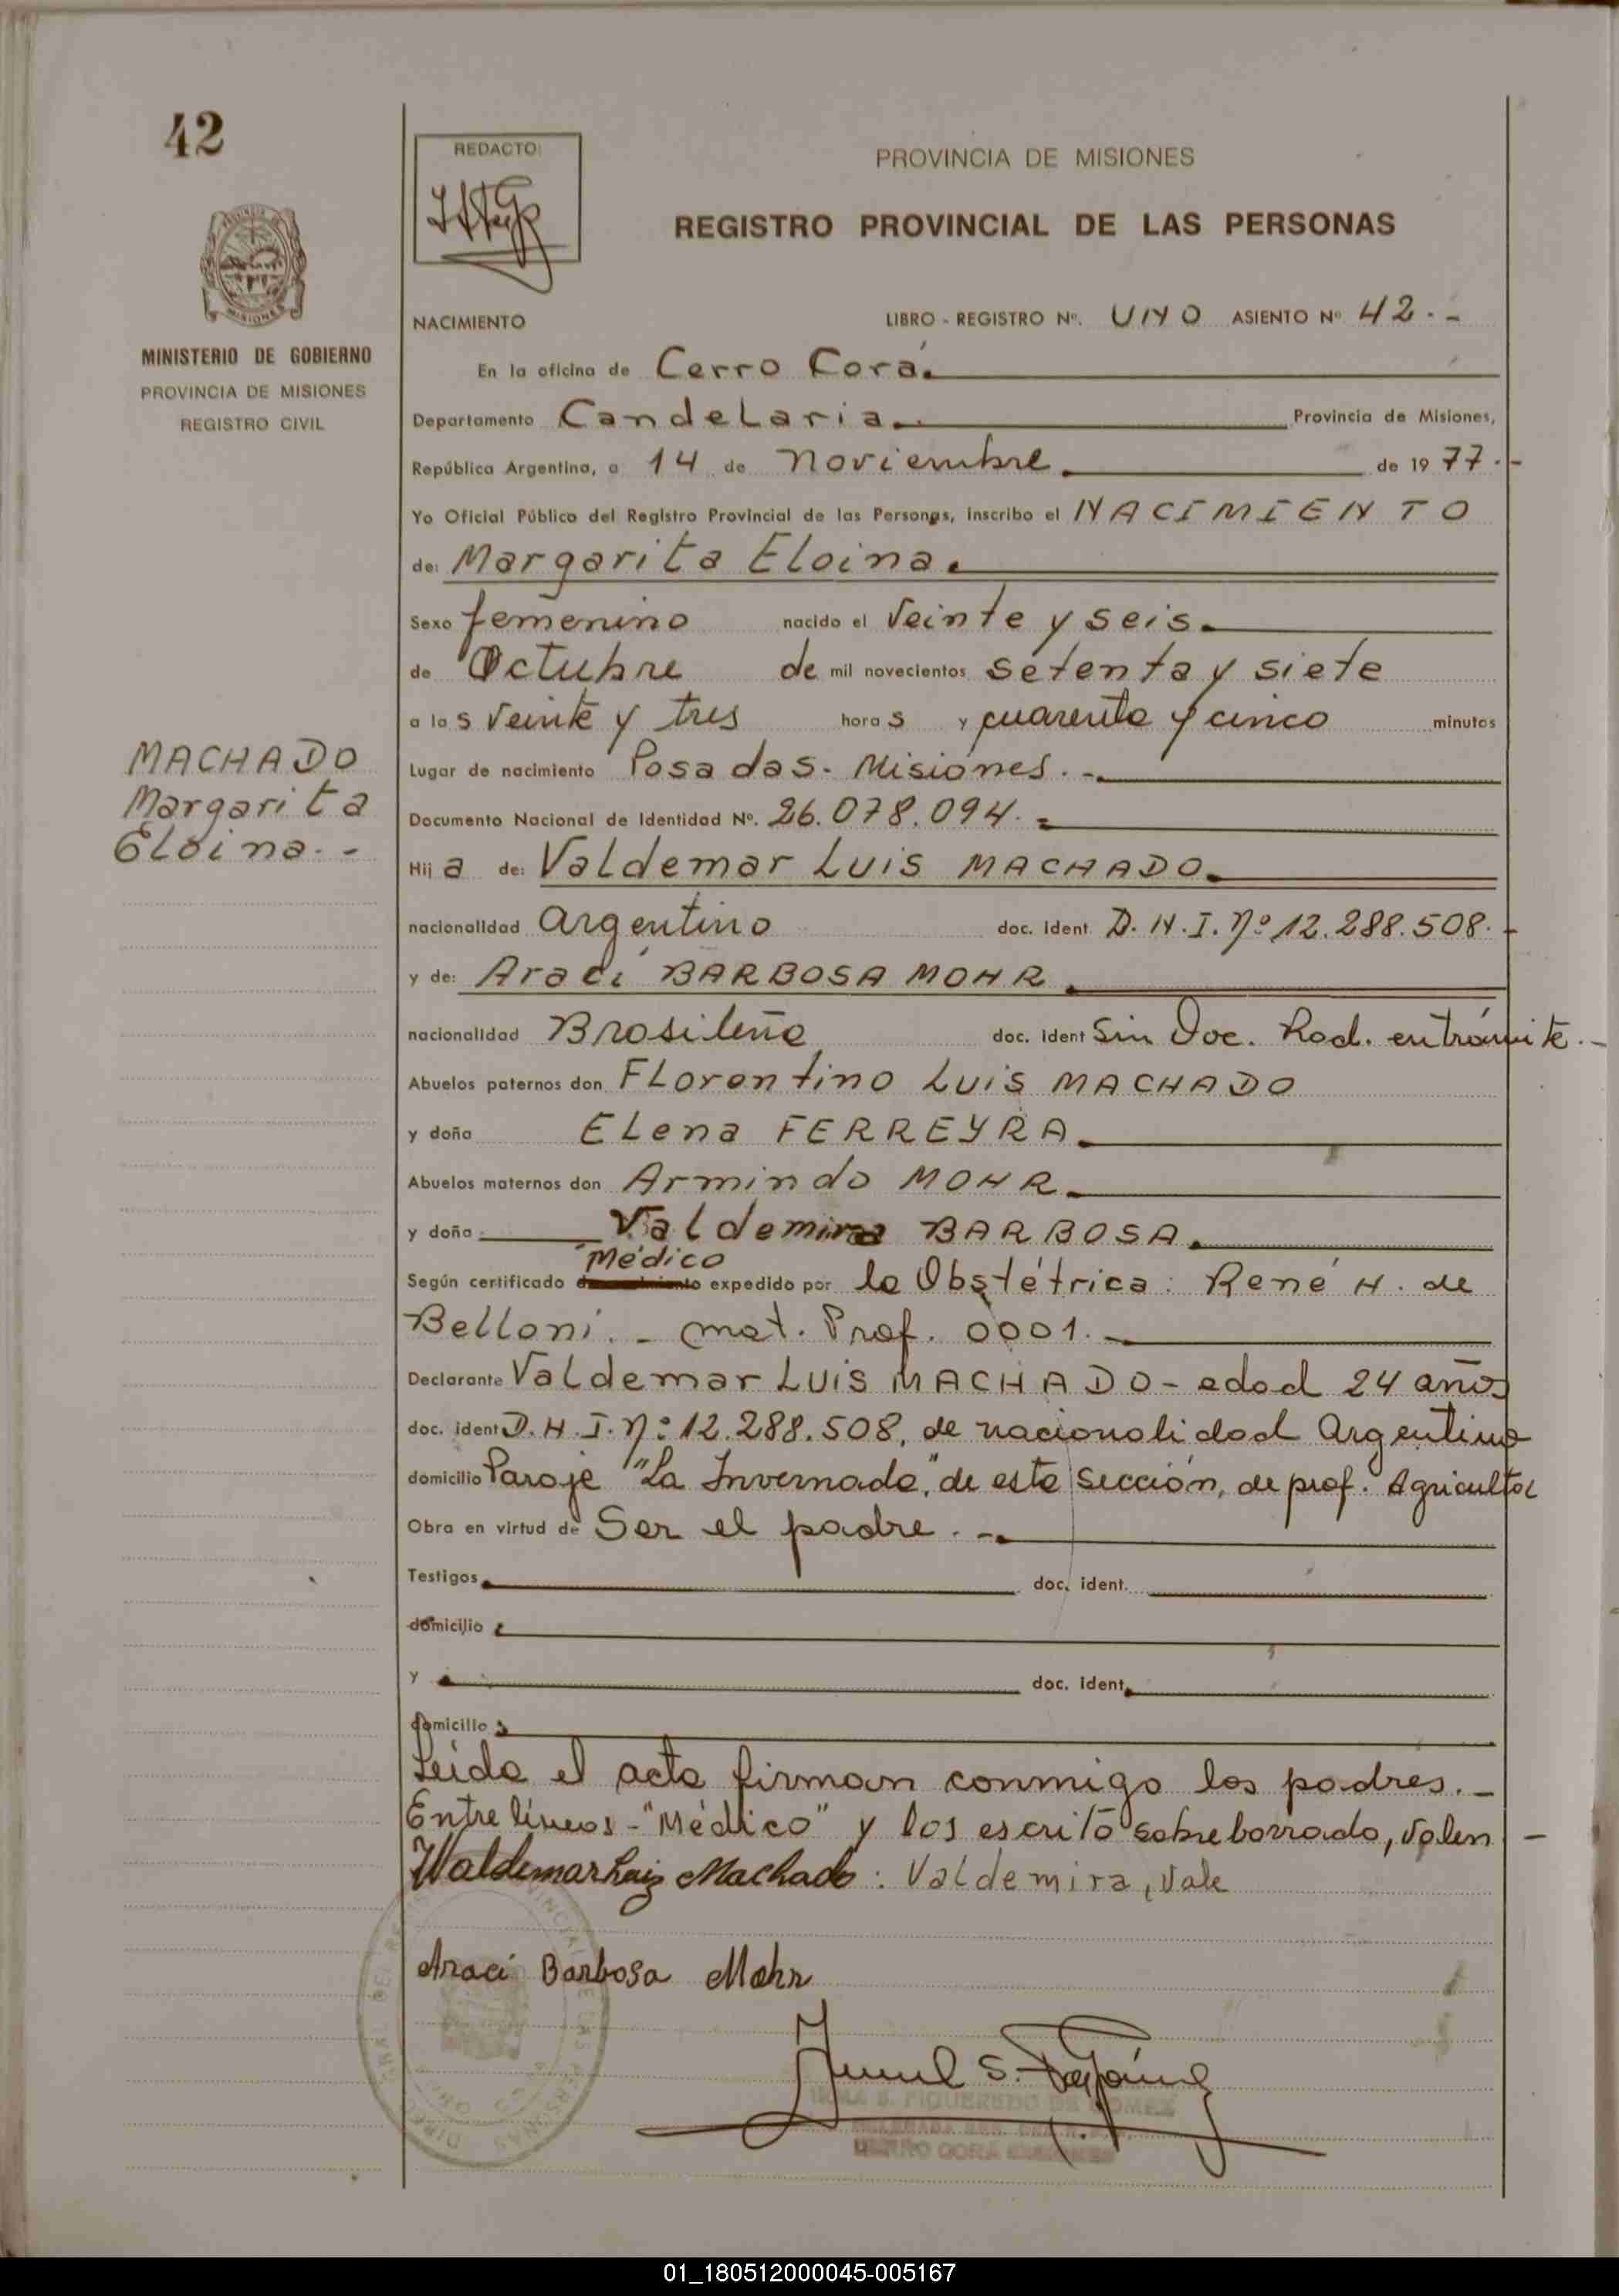 42
REDACTO:
PROVINCIA DE MISIONES
REGISTRO PROVINCIAL DE LAS PERSONAS
MISIONES
MINISTERIO DE GOBIERNO
PROVINCIA DE MISIONES
REGISTRO CIVIL
NACIMIENTO LIBRO - REGISTRO Nº. UNO ASIENTO Nº 42.-
En la oficina de Cerro Corá.
Departamento Candelaria. Provincia de Misiones,
República Argentina, a 14 de Noviembre. de 1977.-
Yo Oficial Público del Registro Provincial de las Personas, inscribo el NACIMIENTO
de: Margarita Eloina.
Sexo femenino nacido el Veinte y seis.
de Octubre de mil novecientos setenta y siete
a las Veinte y tres horas y cuarenta y cinco minutos
MACHADO
Margarita
Eloina.-
Lugar de nacimiento Posadas. Misiones.-
Documento Nacional de Identidad Nº. 26.078.094.=
Hija de: Valdemar Luis MACHADO.
nacionalidad Argentino doc. ident. D.N.I. Nº 12.288.508.-
y de: Araci BARBOSA MOHR.
nacionalidad Brasileña doc. ident Sin Doc. Rad. en trámite.-
Abuelos paternos don Florentino Luis MACHADO
y doña Elena FERREYRA.
Abuelos maternos don Armindo MOHR.
y doña Valdemira BARBOSA.
Médico
Según certificado expedido por la Obstétrica: René H. de
Belloni.- Mat. Prof. 0001.-
Declarante Valdemar Luis MACHADO - edad 24 años
doc. ident D.N.I. Nº: 12.288.508, de nacionalidad Argentino
domicilio Paraje "La Invernada", de esta sección, de prof. Agricultor
Obra en virtud de Ser el padre.-
Testigos doc. ident.
domicilio
y doc. ident.
domicilio
Leída el acta firman conmigo los padres.-
Entre líneas - "Médico" y los escrito sobreborrado, valen -
Waldemar Luiz Machado: Valdemira, Vale
Araci Barbosa Mohr
IRMA S. FIGUEREDO DE GOMEZ
CERRO CORA MISIONES
01_180512000045-005167